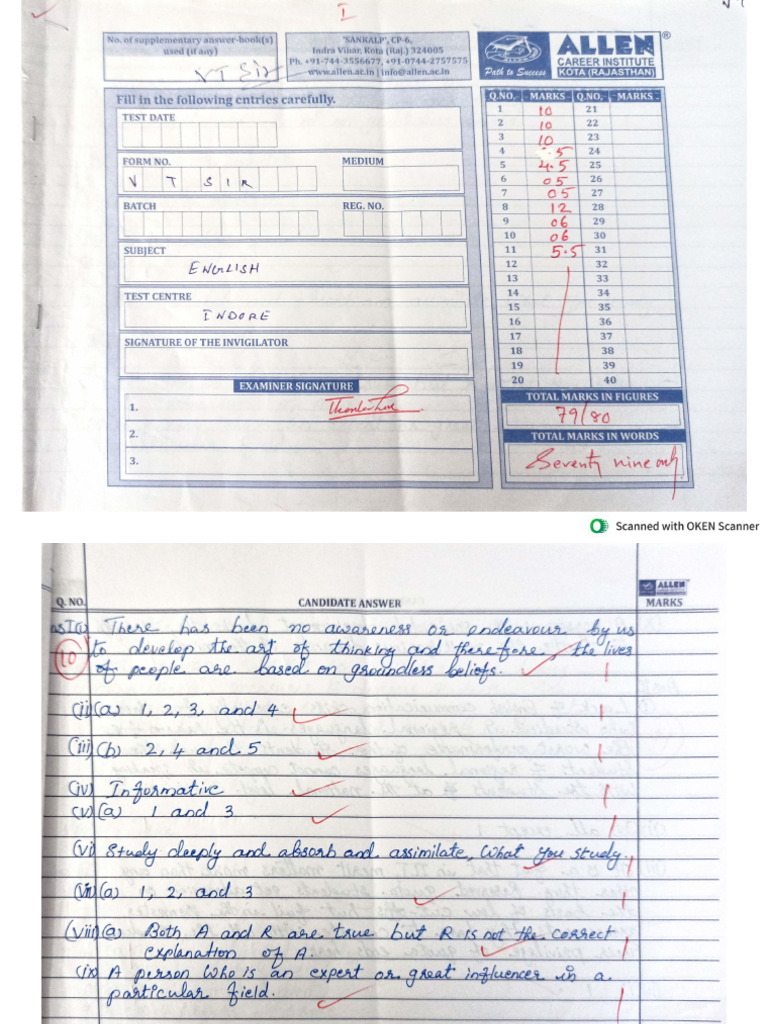 I
No. of supplementary answer-book(s)
used (if any)
VT Sir
'SANKALP', CP-6,
Indra Vihar, Kota (Raj.) 324005
Ph. +91-744-3556677, +91-0744-2757575
www.allen.ac.in | info@allen.ac.in
Path to Success
ALLEN®
CAREER INSTITUTE
KOTA (RAJASTHAN)
Fill in the following entries carefully.
TEST DATE
FORM NO. MEDIUM
V T S I R
BATCH REG. NO.
SUBJECT
ENGLISH
TEST CENTRE
INDORE
SIGNATURE OF THE INVIGILATOR
EXAMINER SIGNATURE
1.
2.
3.
Q.NO. MARKS Q.NO. MARKS
1 10 21
2 10 22
3 10 23
4 .5 24
5 4.5 25
6 05 26
7 05 27
8 12 28
9 06 29
10 06 30
11 5.5 31
12 32
13 33
14 34
15 35
16 36
17 37
18 38
19 39
20 40
TOTAL MARKS IN FIGURES
79/80
TOTAL MARKS IN WORDS
Seventy nine only
Scanned with OKEN Scanner
ALLEN
Q. NO. CANDIDATE ANSWER MARKS
Ans I (i) There has been no awareness or endeavour by us
10 to develop the art of thinking and therefore, the lives
of people are based on groundless beliefs. 1
(ii) (a) 1, 2, 3, and 4 1
(iii) (b) 2, 4 and 5 1
(iv) Informative 1
(v) (a) 1 and 3 1
(vi) Study deeply and absorb and assimilate, What you study. 1
(vii) (a) 1, 2, and 3 1
(viii) (a) Both A and R are true but R is not the correct 1
explanation of A.
(ix) A person who is an expert or great influencer in a
particular field. 1